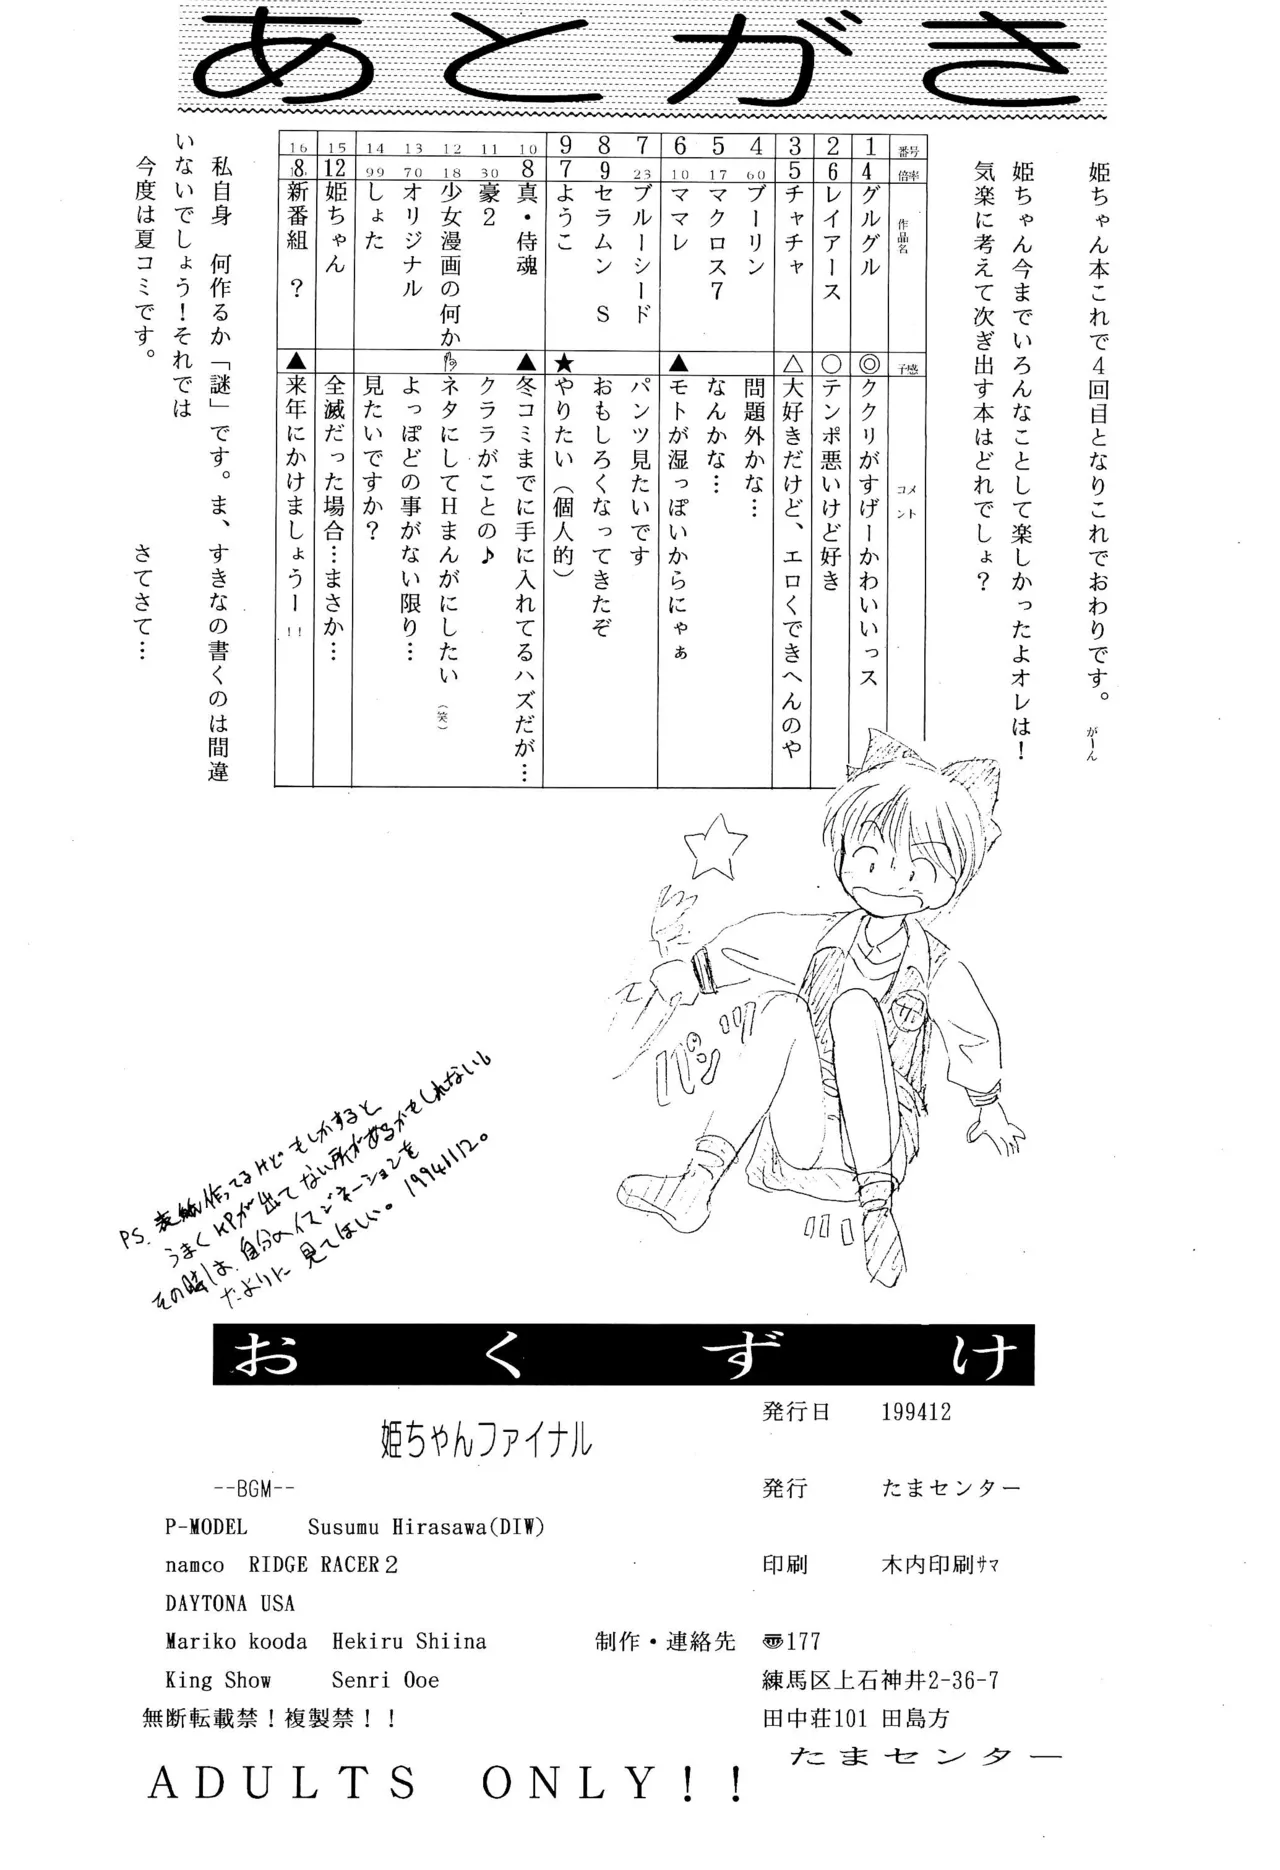 あとがき
姫ちゃん本これで4回目となりこれでおわりです。がーん
姫ちゃん今までいろんなことして楽しかったよオレは!
気楽に考えて次ぎ出す本はどれでしょ?
番号 倍率 作品名 予感 コメント
1 4 グルグル ◎ ククリがすげーかわいいっス
2 6 レイアース ○ テンポ悪いけど好き
3 5 チャチャ △ 大好きだけど、エロくできへんのや
4 60 ブーリン 問題外かな…
5 17 マクロス7 なんかな…
6 10 ママレ ▲ モトが湿っぽいからにゃぁ
7 23 ブルーシード パンツ見たいです
8 9 セラムン S おもしろくなってきたぞ
9 7 ようこ ★ やりたい(個人的)
10 8 真・侍魂 ▲ 冬コミまでに手に入れてるハズだが…
11 30 豪2 クララがことの♪
12 18 少女漫画の何か ネタにしてHまんがにしたい(笑)
13 70 オリジナル よっぽどの事がない限り…
14 99 しょた 見たいですか?
15 12 姫ちゃん 全滅だった場合…まさか…
16 18. 新番組 ? ▲ 来年にかけましょうー!!
私自身 何作るか「謎」です。ま、すきなの書くのは間違
いないでしょう!それでは さてさて…
今度は夏コミです。
パンツ
PS.表紙作ってるけどもしかすると
うまくKPが出てない所があるかもしれない。
その時は、自分のイマジネーションを
たよりに見てほしい。19941112。
おくずけ
姫ちゃんファイナル
発行日 199412
--BGM--
発行 たまセンター
P-MODEL Susumu Hirasawa(DIW)
namco RIDGE RACER2
印刷 木内印刷ｻﾏ
DAYTONA USA
Mariko kooda Hekiru Shiina
制作・連絡先 〠177
King Show Senri Ooe
練馬区上石神井2-36-7
無断転載禁!複製禁!!
田中荘101 田島方
たまセンター
ADULTS ONLY!!